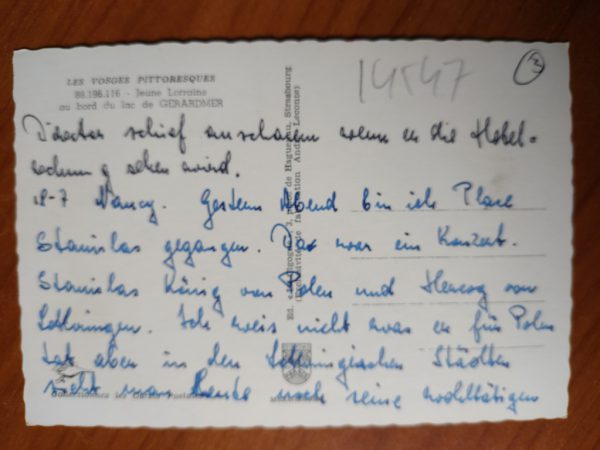 LES VOSGES PITTORESQUES
88.196.116 - Jeune Lorraine
au bord du lac de GERARDMER
14547
3
Director schief anschauen wenn er die Hotel-
rechnung sehen wird.
18-7 Nancy. Gestern Abend bin ich Place
Stanislas gegangen. Das war ein Konzert.
Stanislas König von Polen und Herzog von
Lothringen. Ich weis nicht was er für Polen
tat aber in den Lothringischen Städten
sieht man heute noch seine wohltätigen
Ed. 3, de Haguenau, Strasbourg
fabrication André Leconte